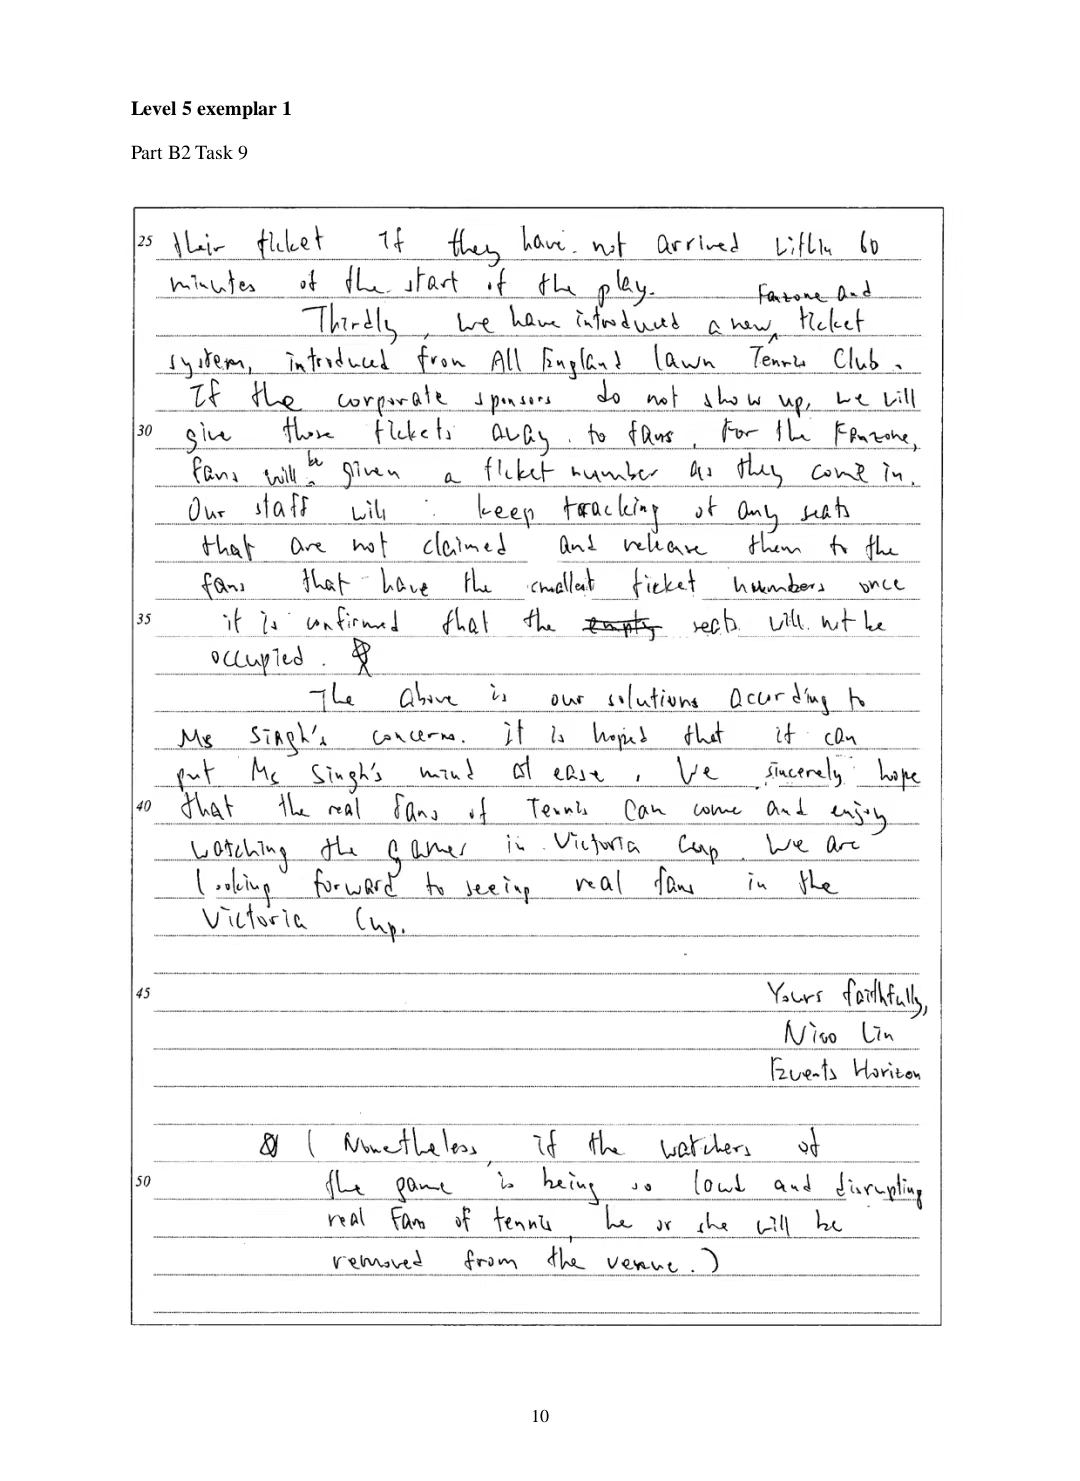 Level 5 exemplar 1
Part B2 Task 9
25 their ticket if they have not arrived within 60
minutes of the start of the play.
Fanzone and
Thirdly, we have introduced a new ^ ticket
system, introduced from All England lawn Tennis Club.
If the corporate sponsors do not show up, we will
30 give those tickets away to fans. For the Fanzone,
be
fans will ^ given a ticket number as they come in.
Our staff will keep tracking of any seats
that are not claimed and release them to the
fans that have the smallest ticket numbers once
35 it is confirmed that the empty seats will not be
occupied.
The above is our solutions according to
Ms Singh's concerns. it is hoped that it can
put Ms Singh's mind at ease. We sincerely hope
40 that the real fans of Tennis can come and enjoy
watching the games in Victoria Cup. We are
looking forward to seeing real fans in the
Victoria Cup.
45 Yours faithfully,
Nico Lin
Events Horizon
( Nonetheless, if the watchers of
50 the game is being so loud and disrupting
real Fans of tennis, he or she will be
removed from the venue.)
10